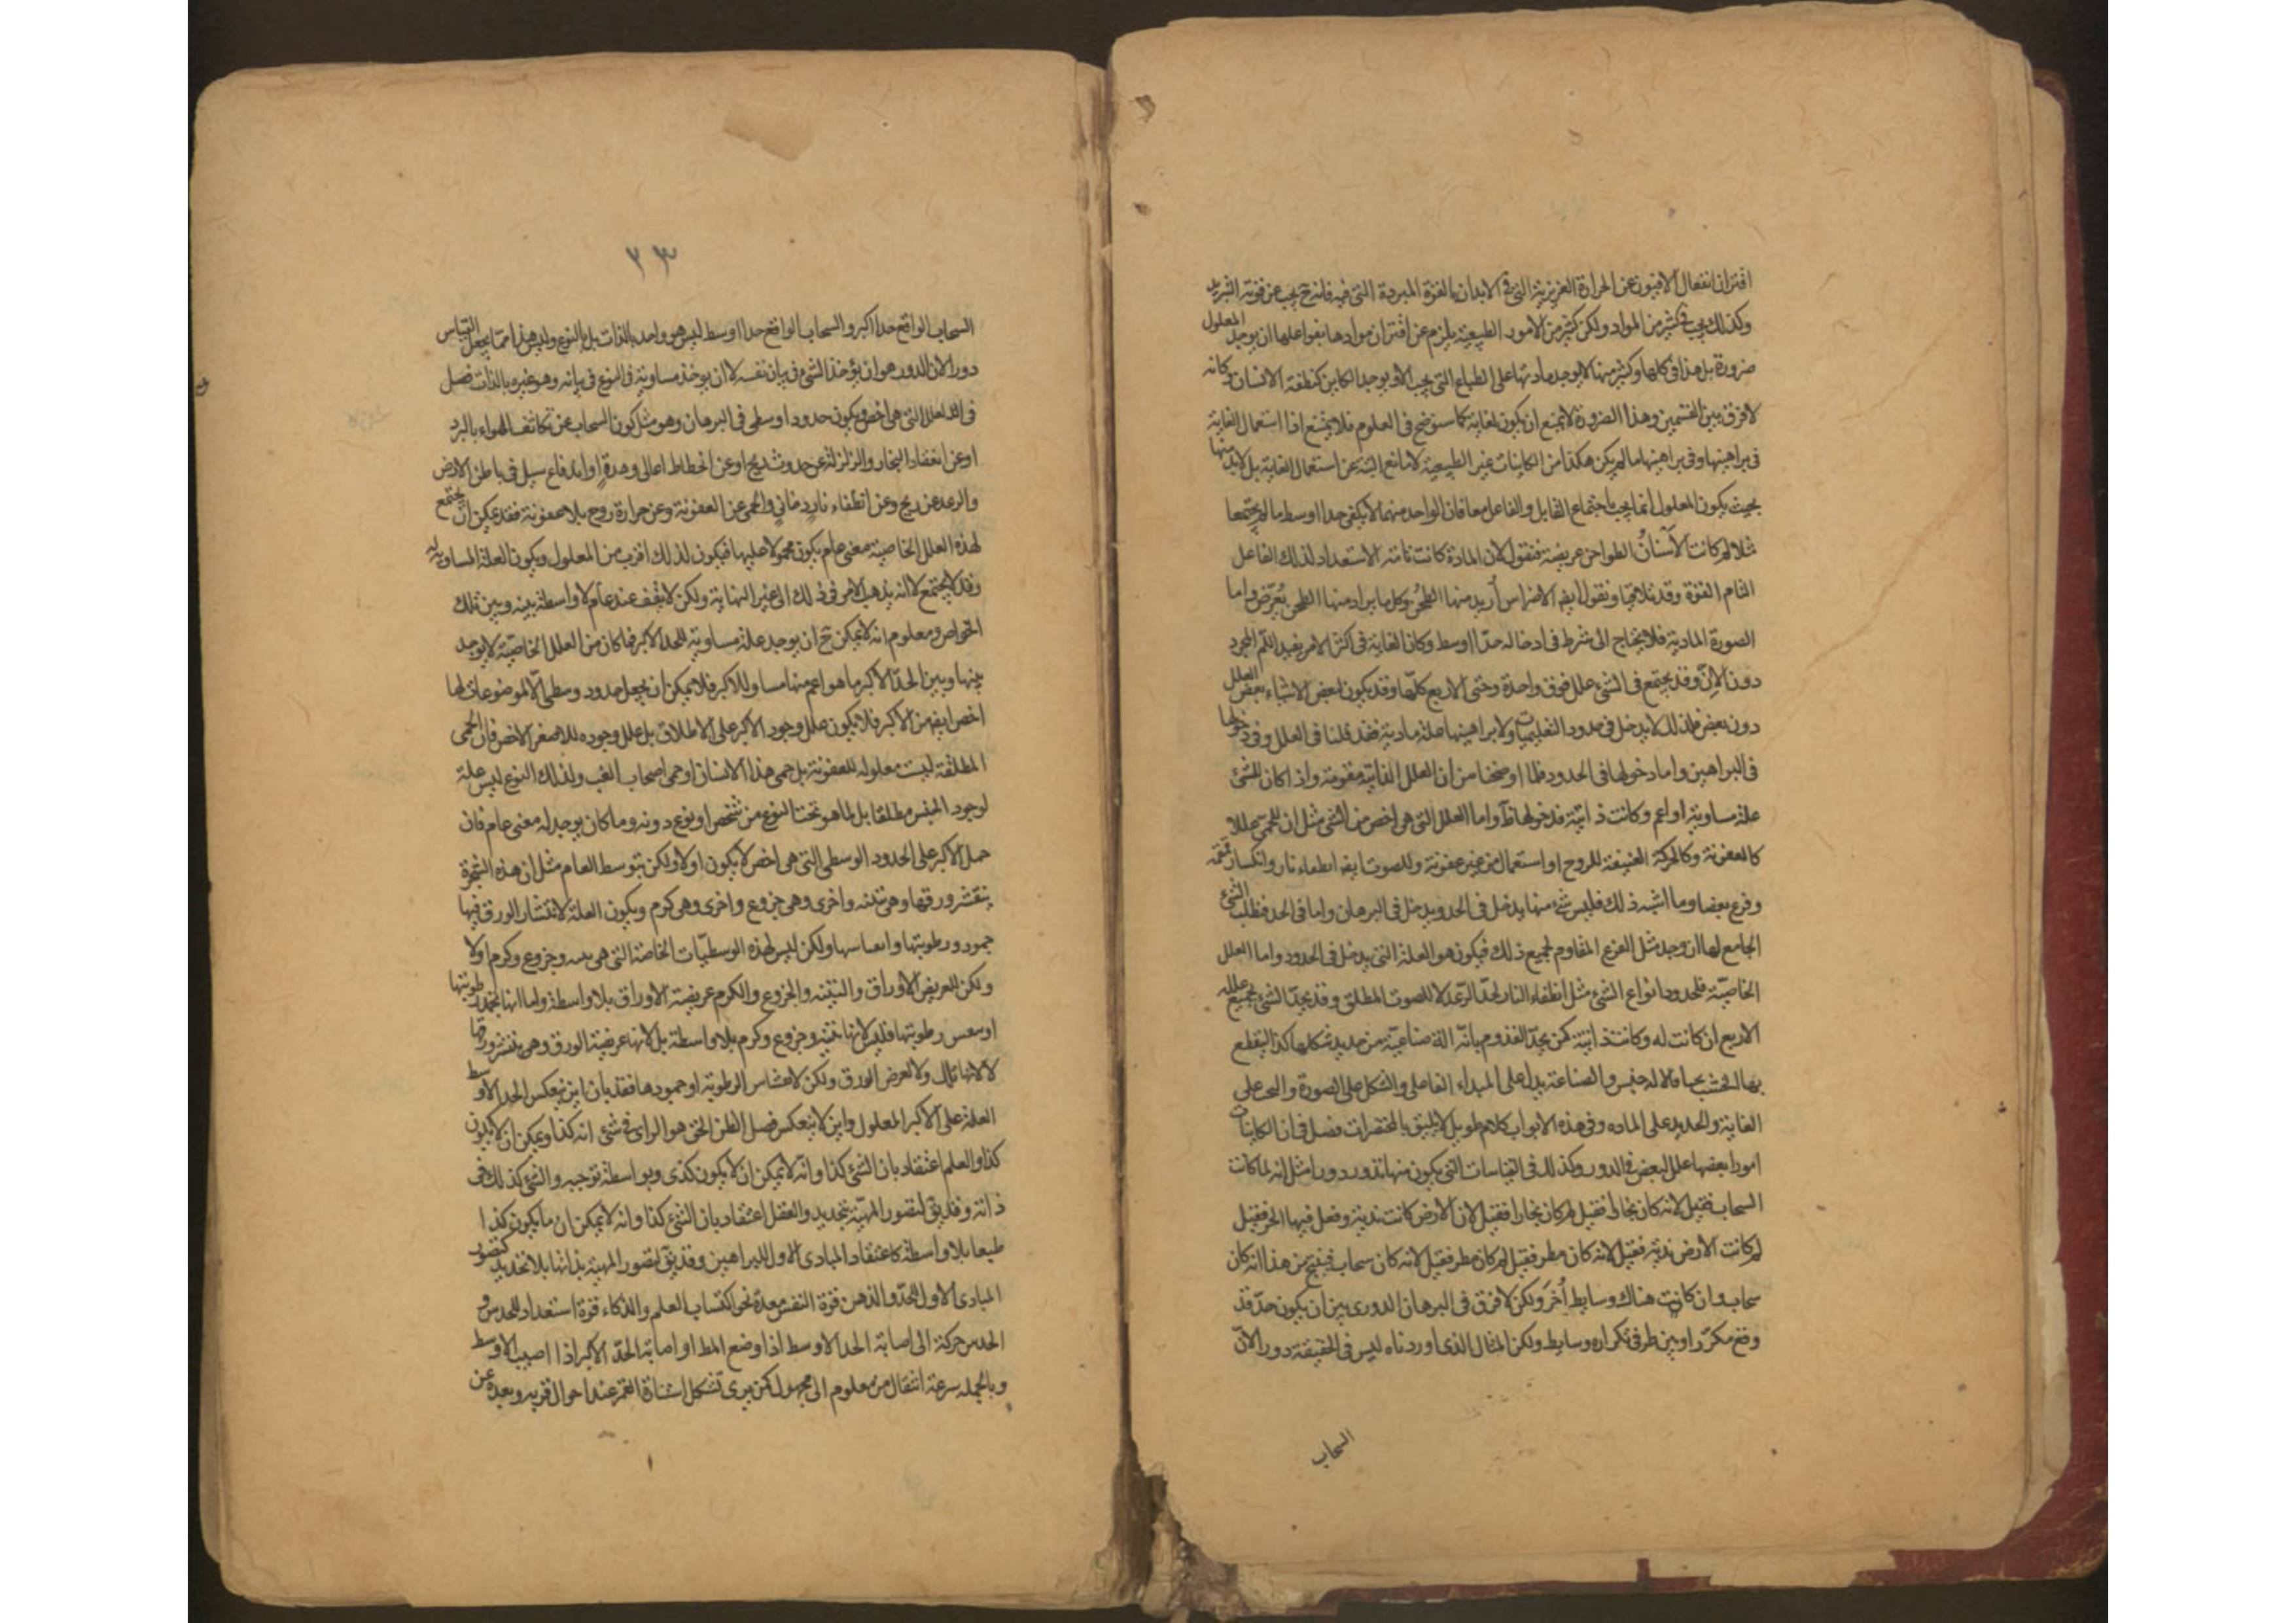 اقتران انفعال الافیون عن الحرارة الغریزیة التی فی الابدان بالقوة المبردة التی فیه فانه ح یجب عن قوته التبرید
وكذلك یجب فی كثیر من المواد ولكن كثیر من الامور الطبیعیة یلزم عن اقتران موادها بفواعلها ان یوجد المعلول
ضرورة بل هذا فی كلها وكثیر منها لا یوجد مادتها علی الطباع التی یجب الا و یوجد الكاین كنطفة الانسان وكانه
لا فرق بین القسمین وهذا الضرورة لا یمنع ان یكون لغایة كما سنوضح فی العلوم فلا یمتنع اذا استعمال الغایة
فی براهینها وفی براهینها ما لم یكن هكذا من الكاینات غیر الطبیعیة لا مانع البتة عن استعمال الغایة بل لابد منها
بحیث یكون المعلول انما یجب باجتماع القابل والفاعل معا فان الواحد منهما لا یكفی حدا اوسط ما لم یجتمعا
مثلا لم كانت الاسنان الطواحن عریضة فنقول لان المادة كانت تامة الاستعداد لذلك الفاعل
التام القوة وقد تلاقیا ونقول ایضا الاضراس أرید منها الطحن وكل ما یراد منها الطحن یعرض واما
الصورة المادیة فلا یحتاج الی شرط فی ادخاله حدا اوسط وكان الغایة فی اكثر الامر یفید اللم المجرد
دون الان وقد یجتمع فی الشئ علل فوق واحدة وحتی الاربع كلها وقد یكون لبعض الاشیاء بعض العلل
دون بعض فلذلك لا یدخل فی حدود التعلیمیات ولا براهینها علة مادیة فقد قلنا فی العلل وفی دخولها
فی البراهین واما دخولها فی الحدود فلما اوضحنا من ان العلل الذاتیة مقومة واذا كان للشئ
علة مساویة او اعم وكانت ذاتیة فدخولها ظ واما العلل التی هی اخص من الشئ مثل ان للحمی عللا
كالعفونة وكالحركة العنیفة للروح او اشتعال من غیر عفونة وللصوت ایضا انطفاء نار وانكسار قمقمة
وقرع بعصا وما اشبه ذلك فلیس شئ منها یدخل فی الحد ویدخل فی البرهان واما فی الحد فطلب الشئ
الجامع لها ان وجد مثل القرع المقاوم لجمیع ذلك فیكون هو العلة التی یدخل فی الحدود واما العلل
الخاصیة فلحدود انواع الشئ مثل انطفاء النار لحد الرعد لا للصوت المطلق وقد یحد الشئ بجمیع علله
الاربع ان كانت له وكانت ذاتیة كمن یحد القدوم بانه آلة صناعیة من حدید شكلها كذا لیقطع
بها الخشب نحتا فالآلة جنس والصناعة یدل علی المبداء الفاعلی والشكل علی الصورة والنحت علی
الغایة والحدید علی الماده وفی هذه الابواب كلام طویل لا یلیق بالمختصرات فصل فی ان الكاینات
امورا بعضها علل لبعض فی الدور وكذلك فی القیاسات التی یكون منها تدور دورا مثل انه لم كانت
السحاب فقیل لانه كان بخار فقیل لم كان بخار فقیل لان الارض كانت ندیة وفعل فیها الحر فقیل
لم كانت الارض ندیة فقیل لانه كان مطر فقیل لم كان مطر فقیل لانه كان سحاب فینتج من هذا انه كان
سحاب وان كانت هناك وسایط أخر ولكن لا فرق فی البرهان الدوری بین ان یكون حد قد
وقع مكررا وبین طرفی تكراره وسایط ولكن المثال الذی اوردناه لیس فی الحقیقة دورا لان
السحاب
۲۳
السحاب الواقع حدا اكبر والسحاب الواقع حدا اوسط لیس هو واحد بالذات بل بالنوع ولیس هذا مما یجعل القیاس
دورا لان الدور هو ان یؤخذ الشئ فی بیان نفسه لا ان یوخذ مساویه فی النوع فی بیانه وهو غیره بالذات فصل
فی ان العلل التی هی اخص یكون حدودا وسطی فی البرهان وهو مثل كون السحاب عن تكاثف الهواء بالبرد
او عن انعقاد البخار والزلزلة عن حدوث ریح او عن انحطاط اعالی وهدة او اندفاع سیل فی باطن الارض
والرعد عن ریح وعن انطفاء نار دخانی والحمی عن العفونة وعن حرارة روح بلا عفونة فقد یمكن ان یجتمع
لهذه العلل الخاصیة معنی عام یكون محمولا علیها فیكون لذلك اقرب من المعلول ویكون العلة المساویة له
وقد لا یجتمع لا انه یذهب الامر فی ذلك الی غیر النهایة ولكن لا یقف عند عام لا واسطة بینه وبین تلك
الخواص ومعلوم انه لا یمكن ح ان یوجد علة مساویة للحد الاكبر فما كان من العلل الخاصیة لا یوجد
بینها وبین الحد الاكبر ما هو اعم منها مساو للاكبر فلا یمكن ان یجعل حدود وسطی الا لموضوعات لها
اخص ایضا من الاكبر فلا یكون علل وجود الاكبر علی الاطلاق بل علل وجوده للاصغر الاخص فان الحمی
المطلقة لیست معلوله للعفونة بل حمی هذا الانسان او حمی اصحاب الغب ولذلك النوع لیس علة
لوجود الجنس مطلقا بل لما هو تحت النوع من شخص او نوع دونه وما كان یوجد له معنی عام فان
حمل الاكبر علی الحدود الوسطی التی هی اخص لا یكون اولا ولكن بتوسط العام مثل ان هذه الشجرة
ینتشر ورقها وهی تینه واخری وهی خروع واخری وهی كرم ویكون العلة لانتشار الورق فیها
جمود رطوبتها وانفساسها ولكن لیس لهذه الوسطیات الخاصة التی هی تینه وخروع وكرم اولا
ولكن للعریض الاوراق والتینه والخروع والكرم عریضة الاوراق بلا واسطة واما انها تجمد رطوبتها
او ینفس رطوبتها فلیس لانها تینه وخروع وكرم بلا واسطة بل لانها عریضة الورق وهی ینتشر ورقها
لا لانها تلك ولا لعرض الورق ولكن لانفشاش الرطوبة او جمودها فقد بان این ینعكس الحد الاوسط
العلة علی الاكبر المعلول واین لا ینعكس فصل الظن الحق هو الرای فی شئ انه كذا ویمكن ان لا یكون
كذا والعلم اعتقاد بان الشئ كذا وانه لا یمكن ان لا یكون كذی وبواسطة توجبه والشئ كذلك فی
ذاته وقد یق لتصور المهیة بتحدید والعقل اعتقاد بان الشئ كذا وانه لا یمكن ان ما یكون كذا
طبعا بلا واسطة كاعتقاد المبادی الاول للبراهین وقد یق لتصور المهیة بذاتها بلا تحدید كتصور
المبادی الاول للحد والذهن قوة النفس معدة نحو اكتساب العلم والذكاء قوة استعداد للحدس و
الحدس حركة الی اصابة الحد الاوسط اذا وضع المط او اصابة الحد الاكبر اذا اصیب الاوسط
وبالجمله سرعة انتقال من معلوم الی مجهول كمن یری تشكل استنارة القمر عند احوال قربه وبعده عن